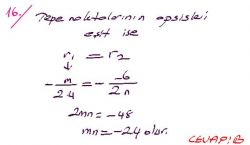 16./ Tepe noktalarının apsisleri
eşit ise
r₁ = r₂
↓
- m/2.4 = - -6/2n
2mn = -48
mn = -24 olur.
CEVAP: B